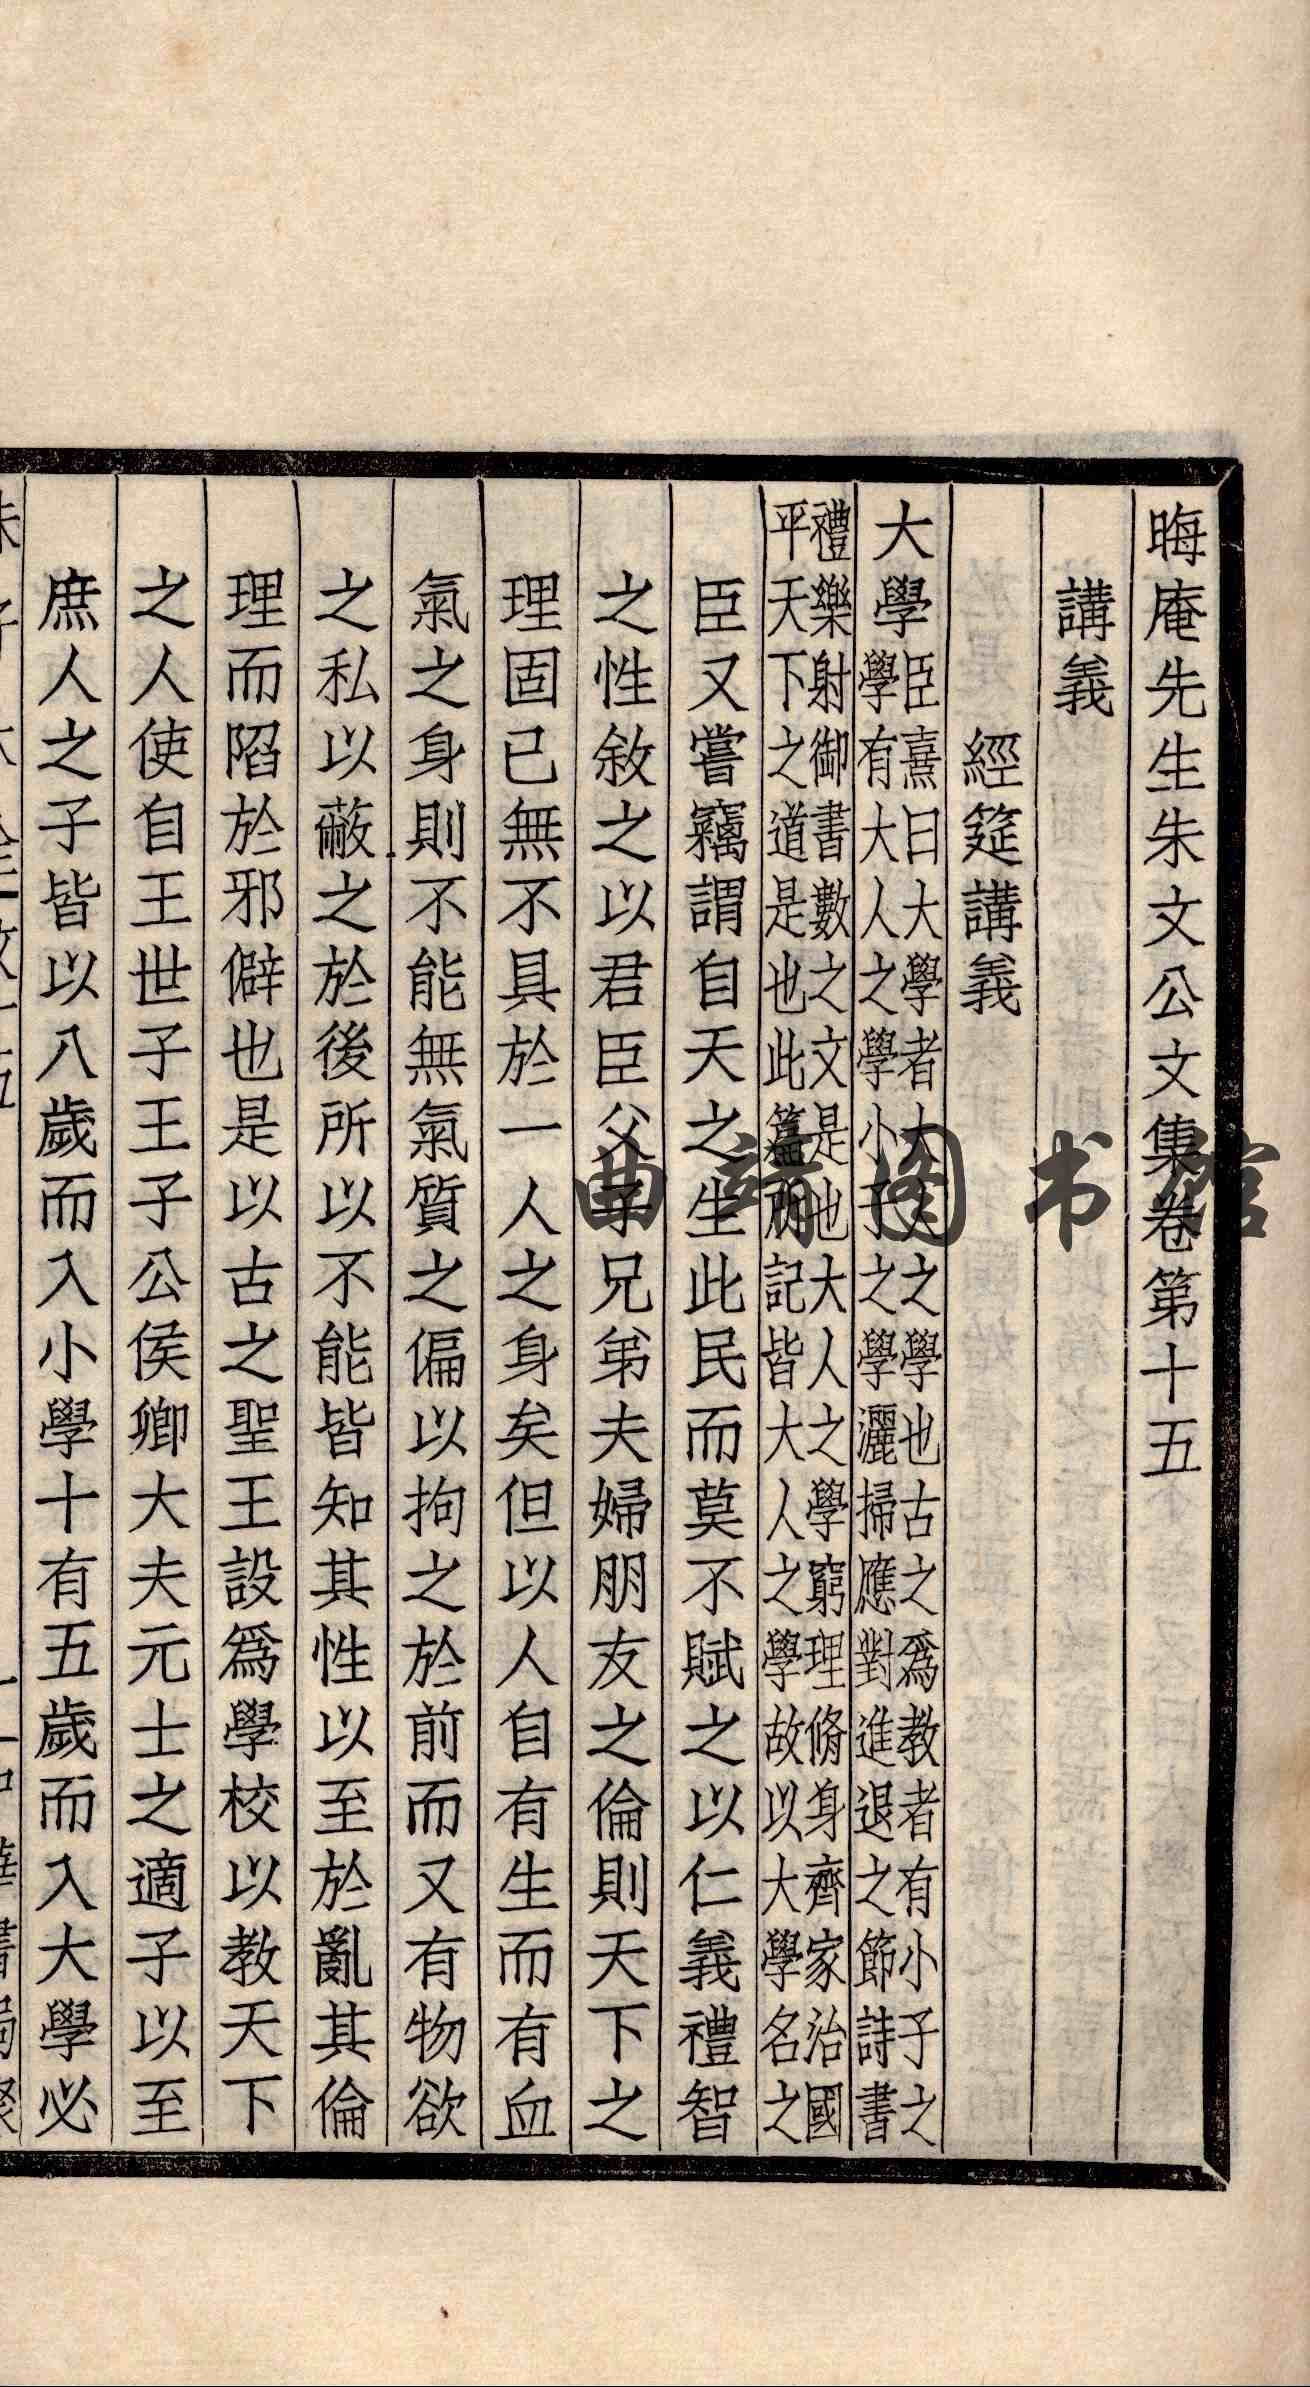 晦庵先生朱文公文集卷第十五
講義
經筵講義
大學
臣熹曰大學者大人之學也古之爲教者有小子之
學有大人之學小子之學灑掃應對進退之節詩書
禮樂射御書數之文是也大人之學窮理脩身齊家治國
平天下之道是也此篇所記皆大人之學故以大學名之
臣又嘗竊謂自天之生此民而莫不賦之以仁義禮智
之性敘之以君臣父子兄弟夫婦朋友之倫則天下之
理固已無不具於一人之身矣但以人自有生而有血
氣之身則不能無氣質之偏以拘之於前而又有物欲
之私以蔽之於後所以不能皆知其性以至於亂其倫
理而陷於邪僻也是以古之聖王設爲學校以教天下
之人使自王世子王子公侯卿大夫元士之適子以至
庶人之子皆以八歲而入小學十有五歲而入大學必
曲靖图书馆